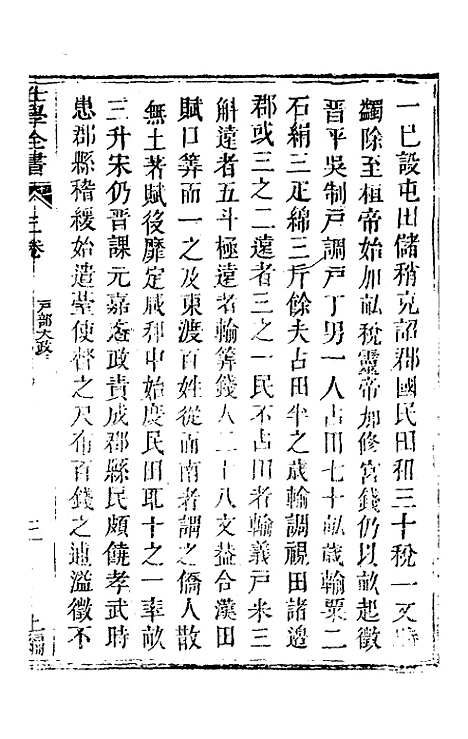 一已設屯田儲稍充詔郡國民田租三十稅一又時
蠲除至桓帝始加畝稅靈帝加修宮錢仍以畝起徵
晉平吳制戶調戶丁男一人占田七十畝歲輸粟二
石絹三疋綿三斤餘夫占田半之歲輸調視田諸邉
郡或三之二遠者三之一民不占田者輸義戶米三
斛遠者五斗極遠者輸筭錢人二十八文葢合漢田
賦口筭而一之及東渡百姓從而南者謂之僑人散
無土著賦後靡定咸和中始度民田取十之一率畝
三升宋仍晉課元嘉為政責成郡縣民頗饒孝武時
患郡縣稽緩始遣臺使督之尺布百錢之逋濫徵不
仕學全書
上卷
戶部大政
上編